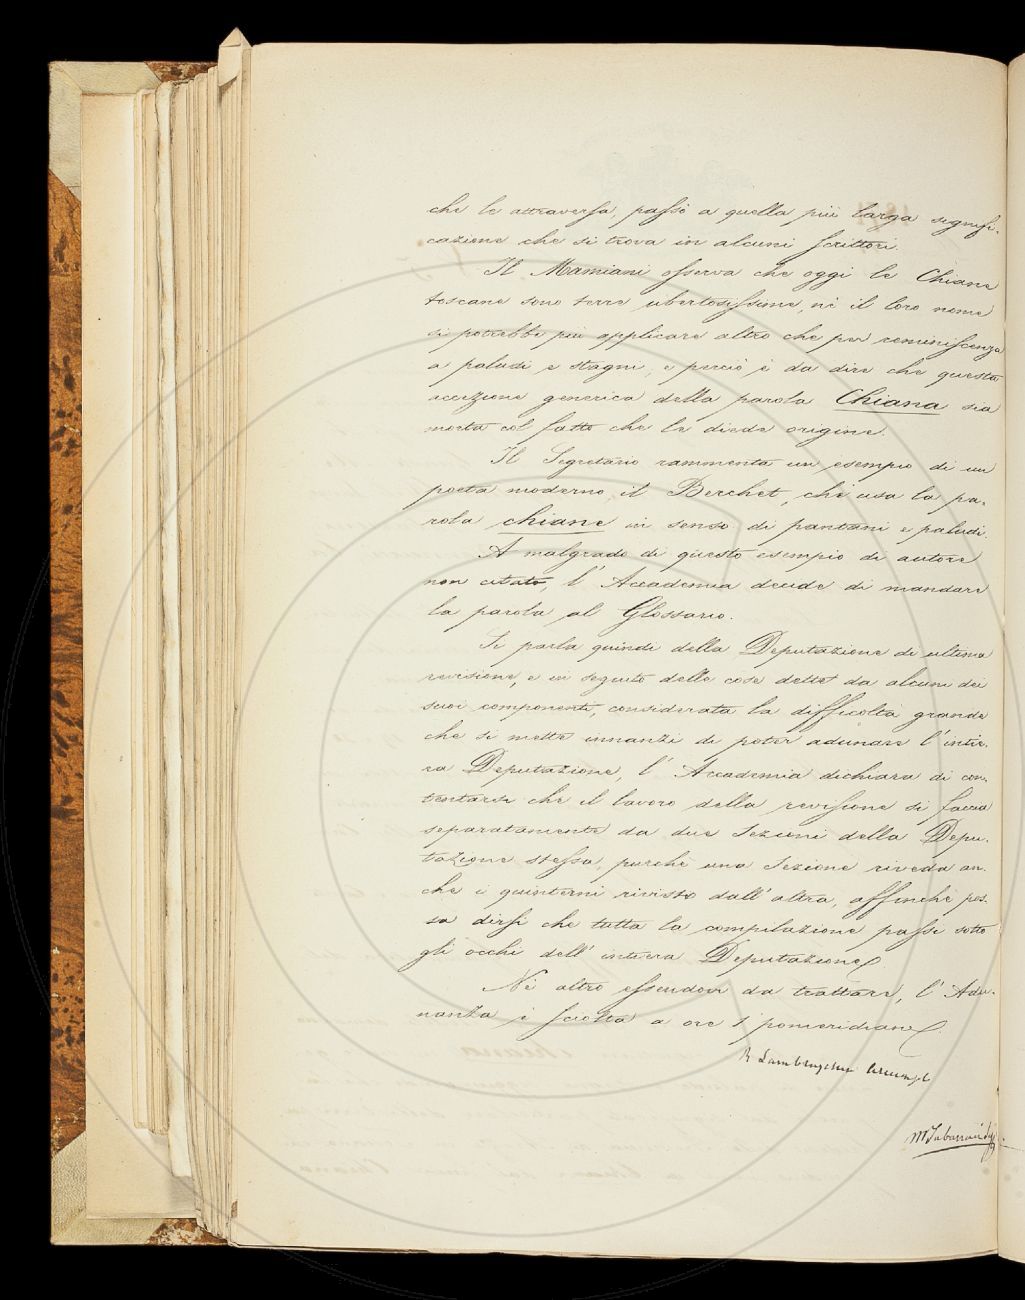 che le attraversa, passò a quella più larga signifi-
cazione che si trova in alcuni scrittori.
Il Mamiani osserva che oggi le Chiane
toscane sono terre ubertosissime, nè il loro nome
si potrebbe più applicare altro che per reminiscenza
a paludi e stagni, e perciò è da dire che questa
accezione generica della parola Chiana sia
morta col fatto che le diede origine.
Il Segretario rammenta un esempio di un
poeta moderno, il Berchet, che usa la pa-
rola chiane in senso di pantani e paludi.
A malgrado di questo esempio di autore
non citato, l'Accademia decide di mandare
la parola al Glossario.
Si parla quindi della Deputazione di ultima
revisione, e in seguito delle cose dette da alcuni dei
suoi componenti, considerata la difficoltà grande
che si mette innanzi di poter adunare l'intie-
ra Deputazione, l'Accademia dichiara di con-
tentarsi che il lavoro della revisione si faccia
separatamente da due Sezioni della Depu-
tazione stessa, purchè una Sezione riveda an-
che i quinterni rivisti dall'altra, affinchè pos-
sa dirsi che tutta la compilazione passi sotto
gli occhi dell'intiera Deputazione.
Nè altro essendovi da trattare, l'Adu-
nanza è sciolta a ore 3 pomeridiane.
R Lambruschini Arciconsolo
M Tabarrini